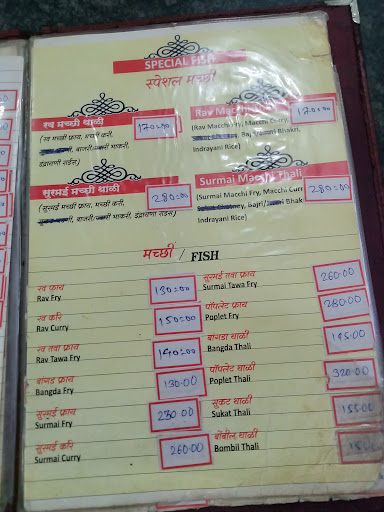 SPECIAL FISH
स्पेशल मच्छी
रव मच्छी थाळी
170=00
(रव मच्छी फ्राय, मच्छी करी,
बाजरी/ भाकरी,
इंद्रायणी राईस)
Rav Macchi
170=00
(Rav Macchi Fry, Macchi Curry
Bajri/ Bhakri,
Indrayani Rice)
सुरमई मच्छी थाळी
280=00
(सुरमई मच्छी फ्राय, मच्छी करी,
बाजरी/ भाकरी,
इंद्रायणी राईस)
Surmai Macchi Thali
280=00
(Surmai Macchi Fry, Macchi Curr
Bajri/ Bhakri,
Indrayani Rice)
मच्छी / FISH
रव फ्राय
Rav Fry
130=00
रव करी
Rav Curry
150=00
रव तवा फ्राय
Rav Tawa Fry
140=00
बांगडा फ्राय
Bangda Fry
130.00
सुरमई फ्राय
Surmai Fry
250.00
सुरमई करी
Surmai Curry
260.00
सुरमई तवा फ्राय
Surmai Tawa Fry
260.00
पॉपलेट फ्राय
Poplet Fry
280.00
बांगडा थाळी
Bangda Thali
195.00
पॉपलेट थाळी
Poplet Thali
320.00
सुकट थाळी
Sukat Thali
155.00
बोंबील थाळी
Bombil Thali